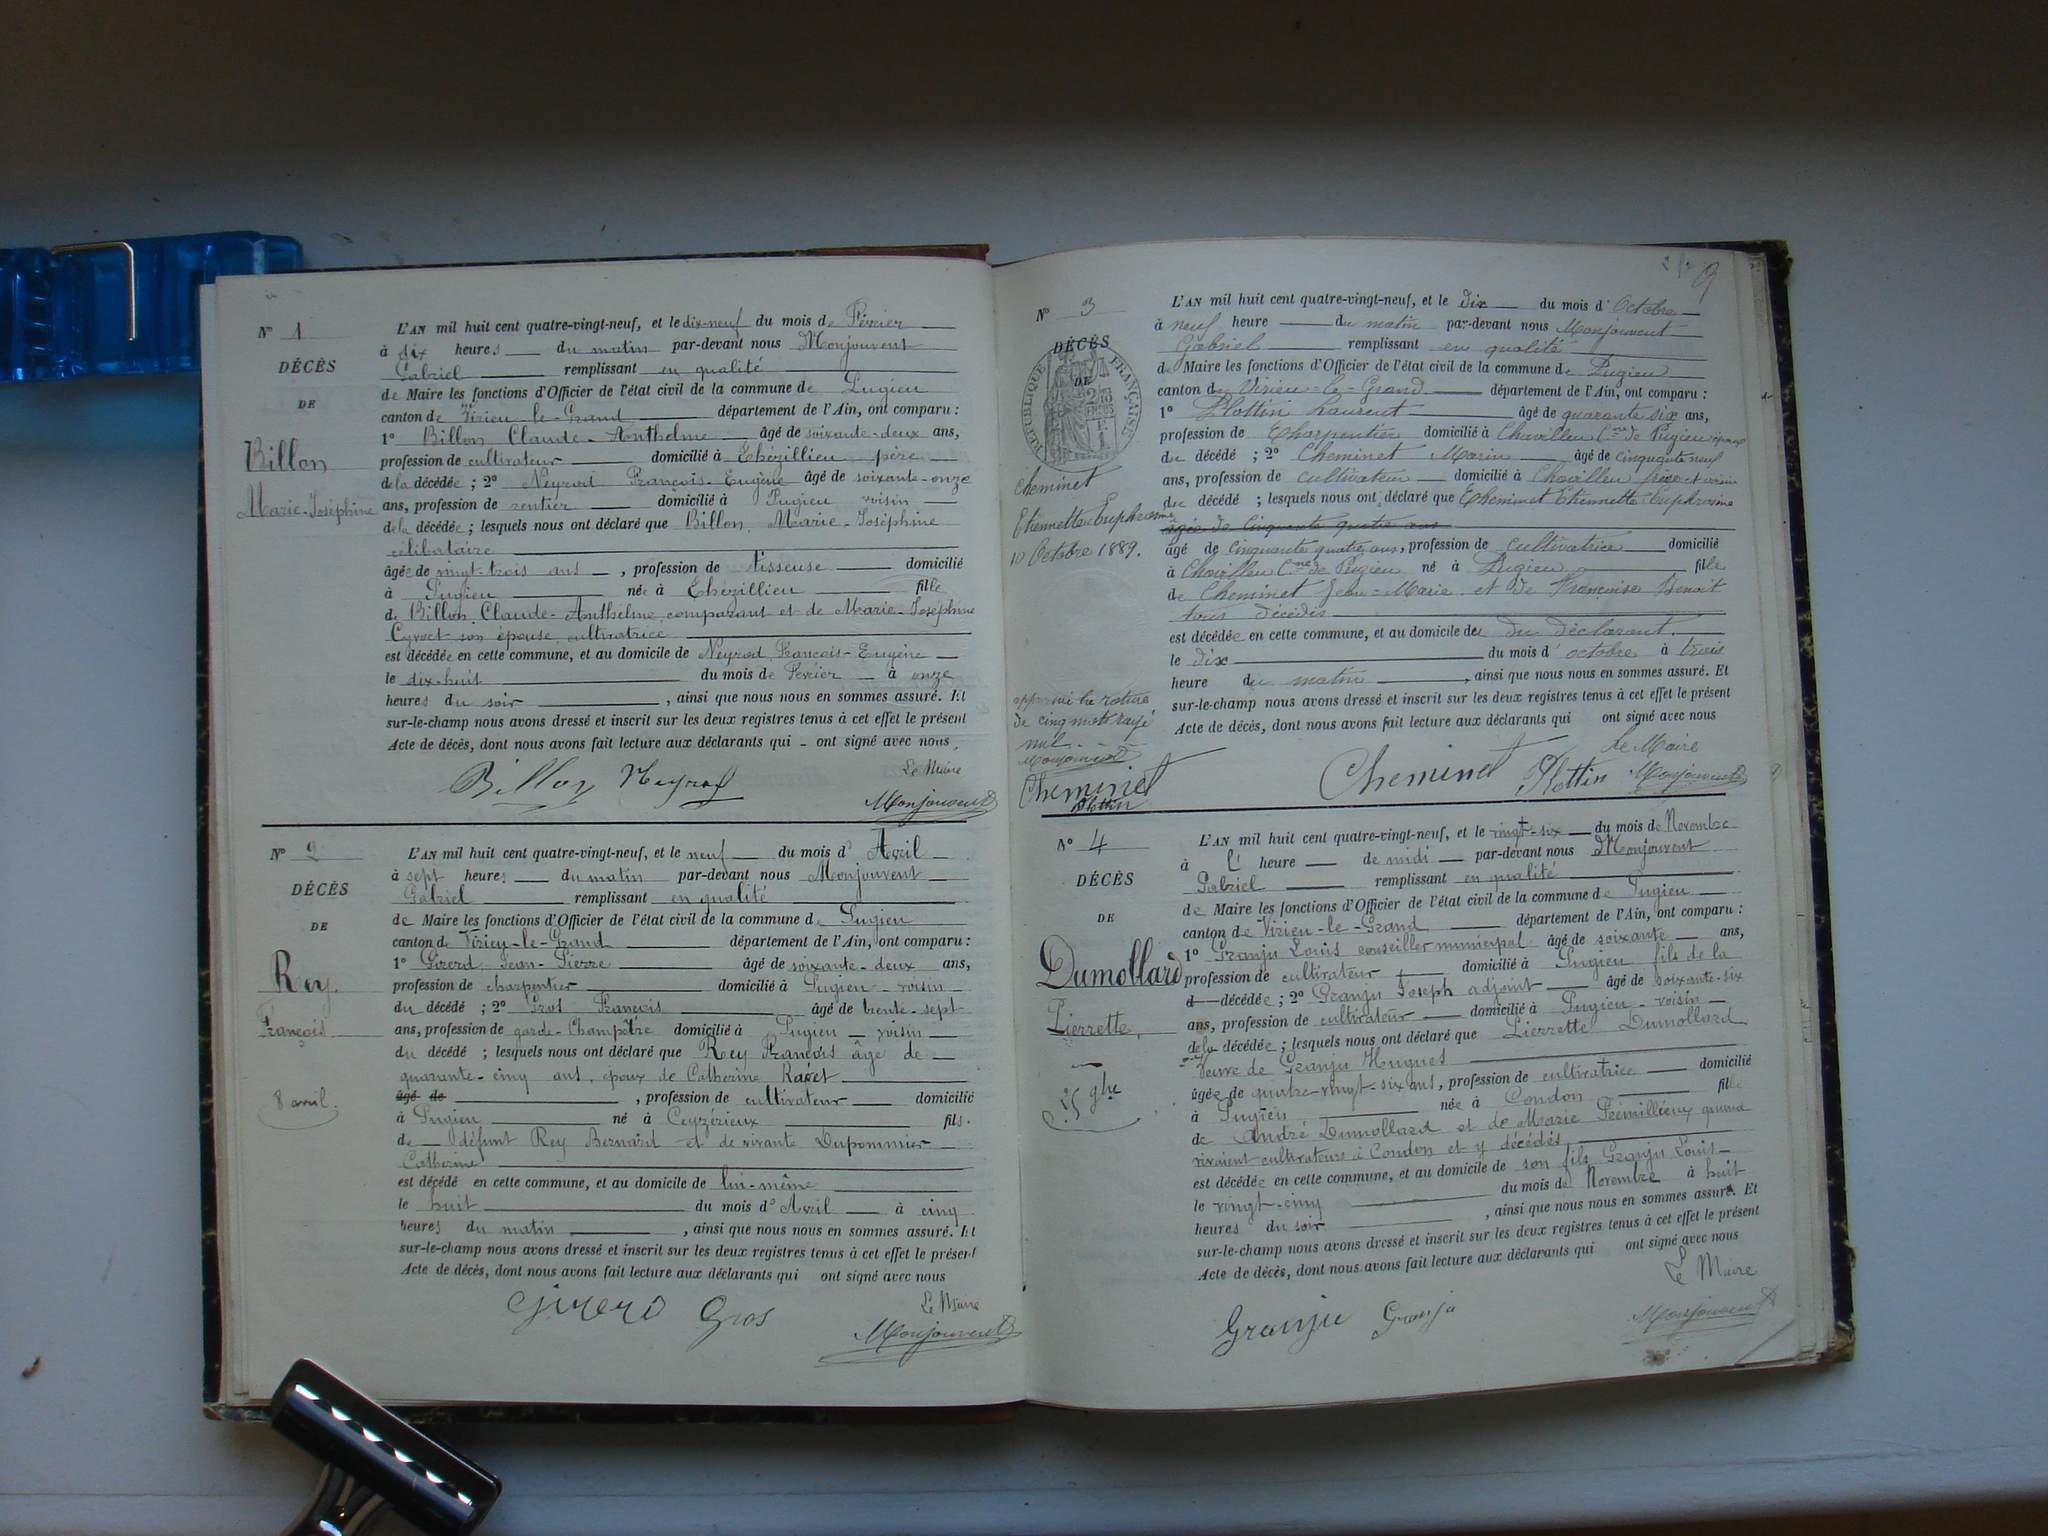 N° 1
DÉCÈS
DE
Billon
Marie-Joséphine
L'AN mil huit cent quatre-vingt-neuf, et le dix-neuf du mois de Février
à dix heures du matin par-devant nous Monjouvent
Gabriel remplissant en qualité
de Maire les fonctions d'Officier de l'état civil de la commune de Pugieu
canton de Virieu-le-Grand département de l'Ain, ont comparu :
1° Billon Claude-Anthelme âgé de soixante-deux ans,
profession de cultivateur domicilié à Chézillieu père
de la décédée ; 2° Neyrod François-Eugène âgé de soixante-onze
ans, profession de rentier domicilié à Pugieu voisin
de la décédée ; lesquels nous ont déclaré que Billon Marie-Joséphine
célibataire
âgée de vingt-trois ans, profession de tisseuse domicilié
à Pugieu née à Chézillieu fille
de Billon Claude-Anthelme comparant et de Marie-Joséphine
son épouse cultivatrice
est décédée en cette commune, et au domicile de Neyrod François-Eugène
le dix-huit du mois de Février à onze
heures du soir, ainsi que nous nous en sommes assuré. Et
sur-le-champ nous avons dressé et inscrit sur les deux registres tenus à cet effet le présent
Acte de décès, dont nous avons fait lecture aux déclarants qui ont signé avec nous.
Le Maire
Billon Neyrod Monjouvent
N° 2
DÉCÈS
DE
Rey
François
8 avril.
L'AN mil huit cent quatre-vingt-neuf, et le neuf du mois d' Avril
à sept heures du matin par-devant nous Monjouvent
Gabriel remplissant en qualité
de Maire les fonctions d'Officier de l'état civil de la commune de Pugieu
canton de Virieu-le-Grand département de l'Ain, ont comparu :
1° Girerd Jean-Pierre âgé de soixante-deux ans,
profession de charpentier domicilié à Pugieu voisin
du décédé ; 2° Gros François âgé de trente-sept
ans, profession de garde-Champêtre domicilié à Pugieu voisin
du décédé ; lesquels nous ont déclaré que Rey François âgé de
quarante-cinq ans, époux de Catherine Ravet
âgé de, profession de cultivateur domicilié
à Pugieu né à Ceyzérieux fils.
de défunt Rey Bernard et de vivante Dupommier
Catherine
est décédé en cette commune, et au domicile de lui-même
le huit du mois d' Avril à cinq
heures du matin, ainsi que nous nous en sommes assuré. Et
sur-le-champ nous avons dressé et inscrit sur les deux registres tenus à cet effet le présent
Acte de décès, dont nous avons fait lecture aux déclarants qui ont signé avec nous
Le Maire
Girerd Gros Monjouvent
N° 3
DÉCÈS
DE
RÉPUBLIQUE FRANÇAISE
Cheminet
Etiennette Euphrosine
10 Octobre 1889.
approuvé la rature
de cinq mots rayé
nul.
Monjouvent
Cheminet
Plottin
L'AN mil huit cent quatre-vingt-neuf, et le dix du mois d' Octobre
à neuf heure du matin par-devant nous Monjouvent
Gabriel remplissant en qualité
de Maire les fonctions d'Officier de l'état civil de la commune de Pugieu
canton de Virieu-le-Grand département de l'Ain, ont comparu :
1° Plottin Laurent âgé de quarante six ans,
profession de Charpentier domicilié à Chavilleu Cne de Pugieu époux
du décédé ; 2° Cheminet Marin âgé de cinquante neuf
ans, profession de cultivateur domicilié à Chavilleu frère et voisin
du décédé ; lesquels nous ont déclaré que Cheminet Etiennette Euphrosine
âgée de cinquante quatre ans
âgé de cinquante quatre ans, profession de cultivatrice domicilié
à Chavilleu Cne de Pugieu né à Pugieu fille
de Cheminet Jean-Marie et de Françoise Benoit
tous décédés
est décédée en cette commune, et au domicile de du déclarant
le dix du mois d' octobre à trois
heure du matin, ainsi que nous nous en sommes assuré. Et
sur-le-champ nous avons dressé et inscrit sur les deux registres tenus à cet effet le présent
Acte de décès, dont nous avons fait lecture aux déclarants qui ont signé avec nous
Le Maire
Cheminet Plottin Monjouvent
N° 4
DÉCÈS
DE
Dumollard
Pierrette,
25 9bre
L'AN mil huit cent quatre-vingt-neuf, et le vingt-six du mois de Novembre
à l' heure de midi par-devant nous Monjouvent
Gabriel remplissant en qualité
de Maire les fonctions d'Officier de l'état civil de la commune de Pugieu
canton de Virieu-le-Grand département de l'Ain, ont comparu :
1° Granju Louis conseiller municipal âgé de soixante ans,
profession de cultivateur domicilié à Pugieu fils de la
décédée ; 2° Granju Joseph adjoint âgé de soixante-six
ans, profession de cultivateur domicilié à Pugieu voisin
de la décédée ; lesquels nous ont déclaré que Pierrette Dumollard
Veuve de Granju Hugues
âgée de quatre-vingt-six ans, profession de cultivatrice domicilié
à Pugieu née à Condon fille
de André Dumollard et de Marie Frémillieux quand
vivaient cultivateurs à Condon et y décédés
est décédée en cette commune, et au domicile de son fils Granju Louis
le vingt-cinq du mois de Novembre à huit
heures du soir, ainsi que nous nous en sommes assuré. Et
sur-le-champ nous avons dressé et inscrit sur les deux registres tenus à cet effet le présent
Acte de décès, dont nous avons fait lecture aux déclarants qui ont signé avec nous
Le Maire
Granju Granju Monjouvent